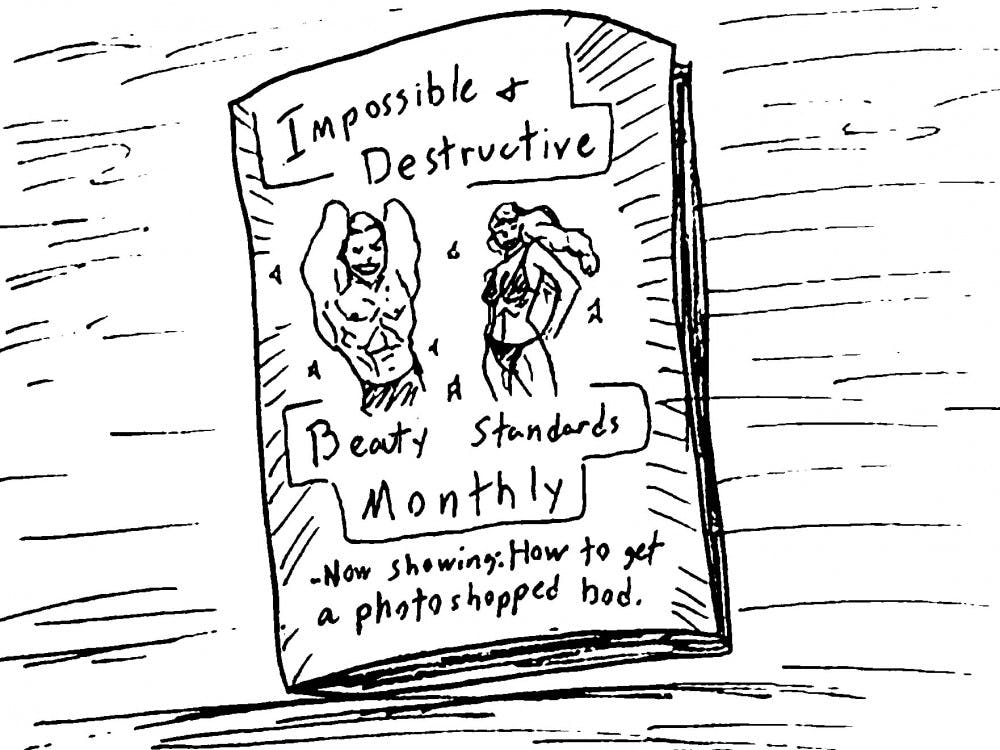 Impossible &
Destructive
Beauty Standards
Monthly
-Now showing: How to get
a photoshopped bod.